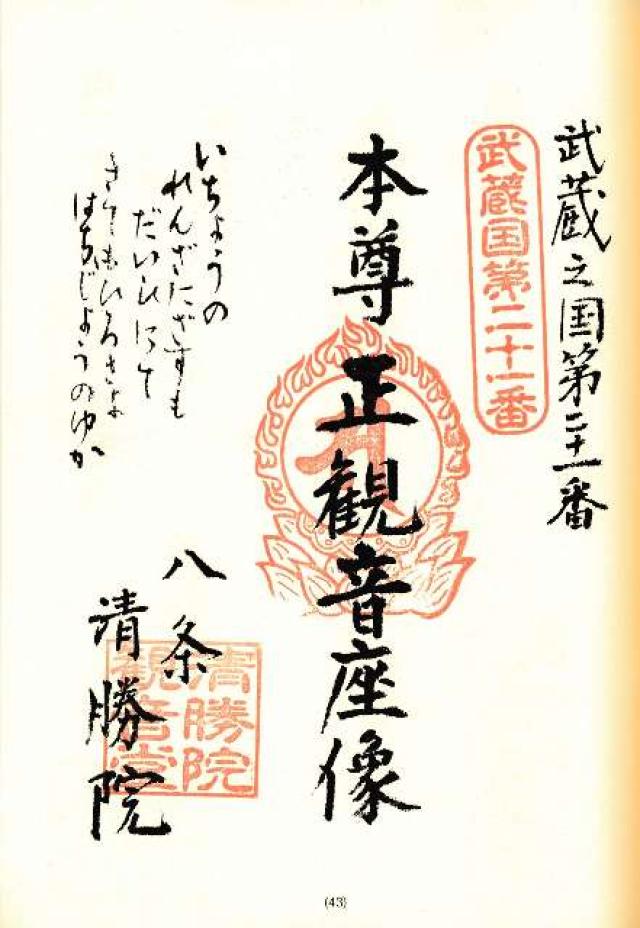 武蔵之国第二十一番
武蔵国第二十一番
本尊正観音座像
いちようの
れんざにざすも
だいひにて
さてもひろさよ
はちじようのゆか
八条
清勝院
清勝院
観音堂
(43)